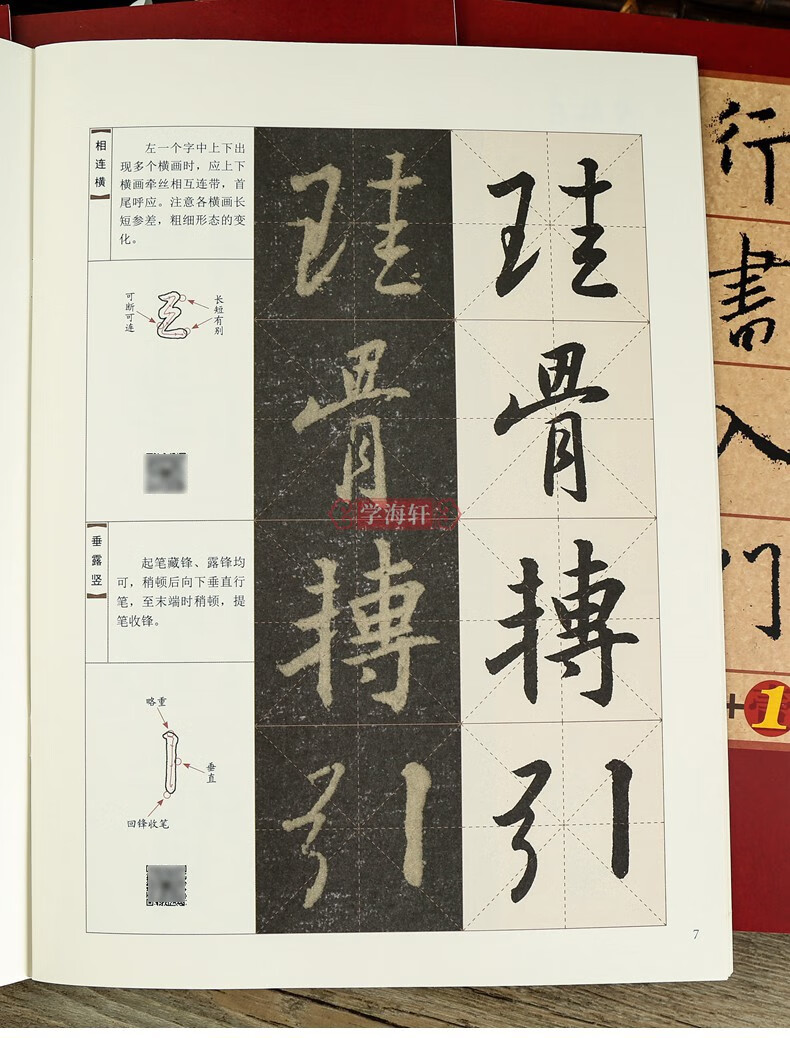 相连横
左一个字中上下出
现多个横画时，应上下
横画牵丝相互连带，首
尾呼应。注意各横画长
短参差，粗细形态的变
化。
可断可连
长短有别
垂露竖
起笔藏锋、露锋均
可，稍顿后向下垂直行
笔，至末端时稍顿，提
笔收锋。
略重
垂直
回锋收笔
珪
骨
搏
引
珪
骨
搏
引
学海轩
7
行書入门
+1